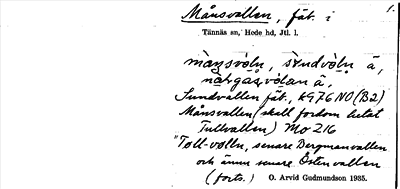 Månsvallen, fäb. i
1.
Tännäs sn, Hede hd, Jtl. l.
måṇsvǫln, sụndvǫ̀ln å,
nårgåsvǫlan å,
Sundvallen fäb., K976 NO (B2)
Månsvallen (skall fordom hetat
Tullvallen) Mo 216
"Toll-volln, senare Bergmanvallen
och ännu senare Östenvallen
(forts.)
O. Arvid Gudmundson 1935.